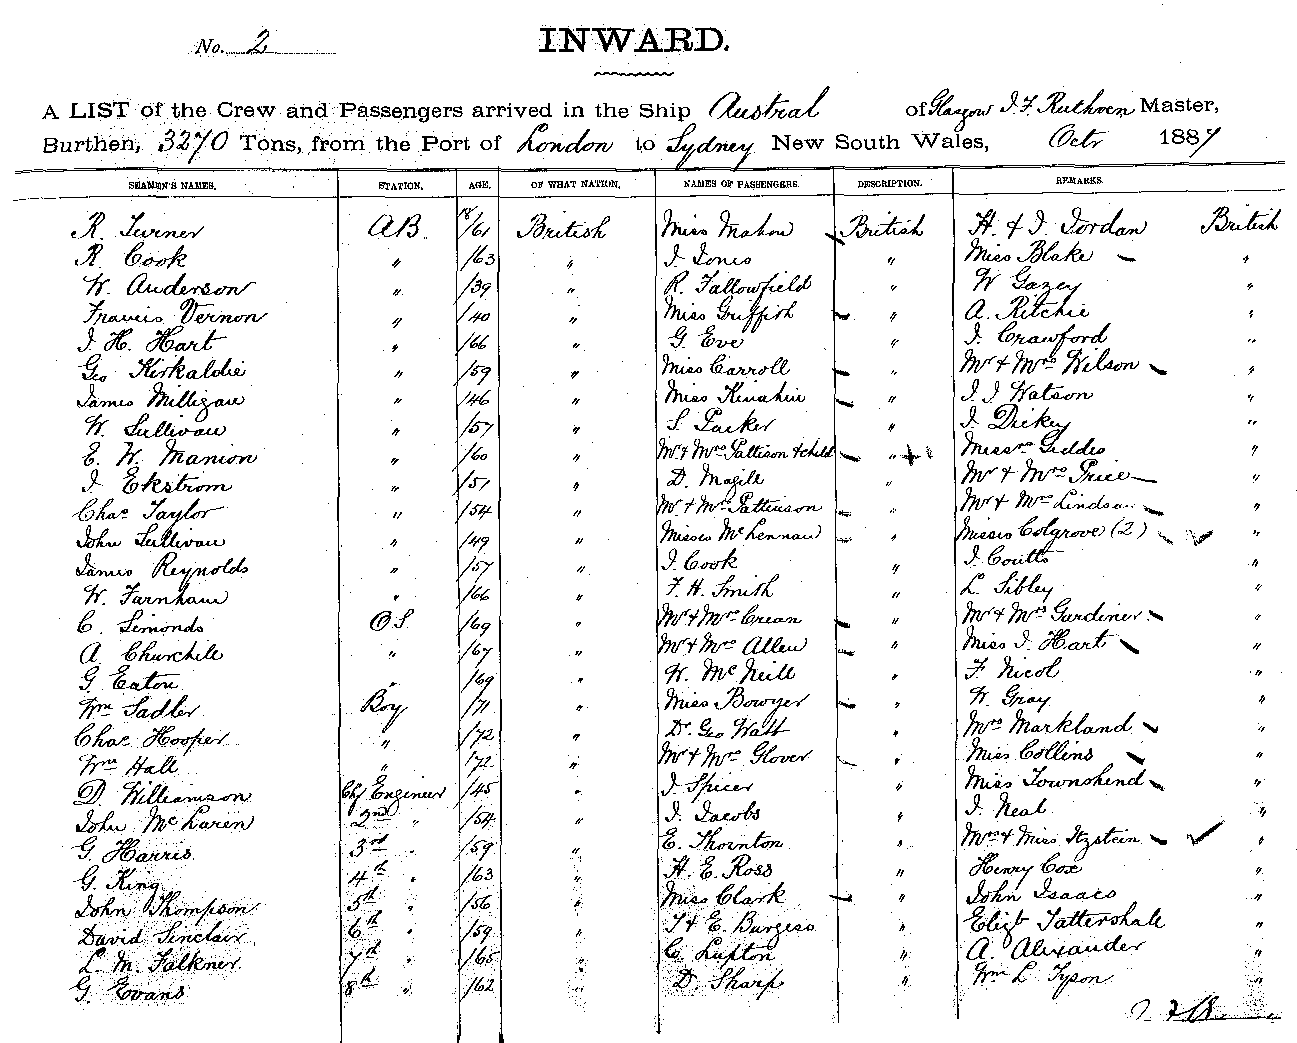 No. 2
INWARD.
A LIST of the Crew and Passengers arrived in the Ship Austral of Glasgow J. F. Ruthven Master,
Burthen, 3270 Tons, from the Port of London to Sydney New South Wales, Octr 1887
SEAMEN'S NAMES. STATION. AGE. OF WHAT NATION. NAMES OF PASSENGERS. DESCRIPTION. REMARKS.
R. Turner AB. 18/61 British Miss Mahon British H. & J. Jordan British
R. Cook " /63 " J. Jones " Miss Blake "
W. Anderson " /39 " R. Fallowfield " W Gazey "
Francis Vernon " /40 " Miss Griffith " A. Ritchie "
J. H. Hart " /66 " G. Eve " J. Crawford "
Geo Kirkaldie " /59 " Miss Carroll " Mr & Mrs Wilson "
James Milligan " /46 " Miss Kinahin " J. J Watson "
W. Sullivan " /57 " S. Parker " J. Dickey "
E. W. Manion " /60 " Mr & Mrs Pattison & child " Messrs Geddes "
J. Ekstrom " /51 " D. Magill " Mr & Mrs Price "
Chas Taylor " /54 " Mr & Mrs Pattinson " Mr & Mrs Lindsau "
John Sullivan " /49 " Misses McLennan " Misses Colgrove (2) "
James Reynolds " /57 " J. Cook " J. Coutts "
W. Farnham " /66 " F. H. Smith " L. Sibley "
C. Simonds OS. /69 " Mr & Mrs Crean " Mr & Mrs Gardiner "
A. Churchill " /67 " Mr & Mrs Allen " Miss J. Hart "
G. Eaton " /69 " W. McNeill " F. Nicol "
Wm Sadler Boy /71 " Miss Bowyer " W. Gray "
Chas Hooper " /72 " Dr. Geo Watt " Mrs Markland "
Wm Hall " /72 " Mr & Mrs Glover " Miss Collins "
D. Williamson Chf Engineer /45 " J. Spicer " Miss Townshend "
John McLaren 2nd " /54 " J. Jacobs " J. Neal "
G. Harris 3rd " /59 " E. Thornton " Mrs & Miss Itzstein "
G. King 4th " /63 " H. E. Ross " Henry Cox "
John Thompson 5th " /56 " Miss Clark " John Isaacs "
David Sinclair 6th " /59 " T & E. Burgess " Elizb Tattershall "
L. M. Falkner 7th " /65 " C. Lupton " A. Alexander "
G. Evans 8th " /62 " D. Sharp " Wm L. Tyson "